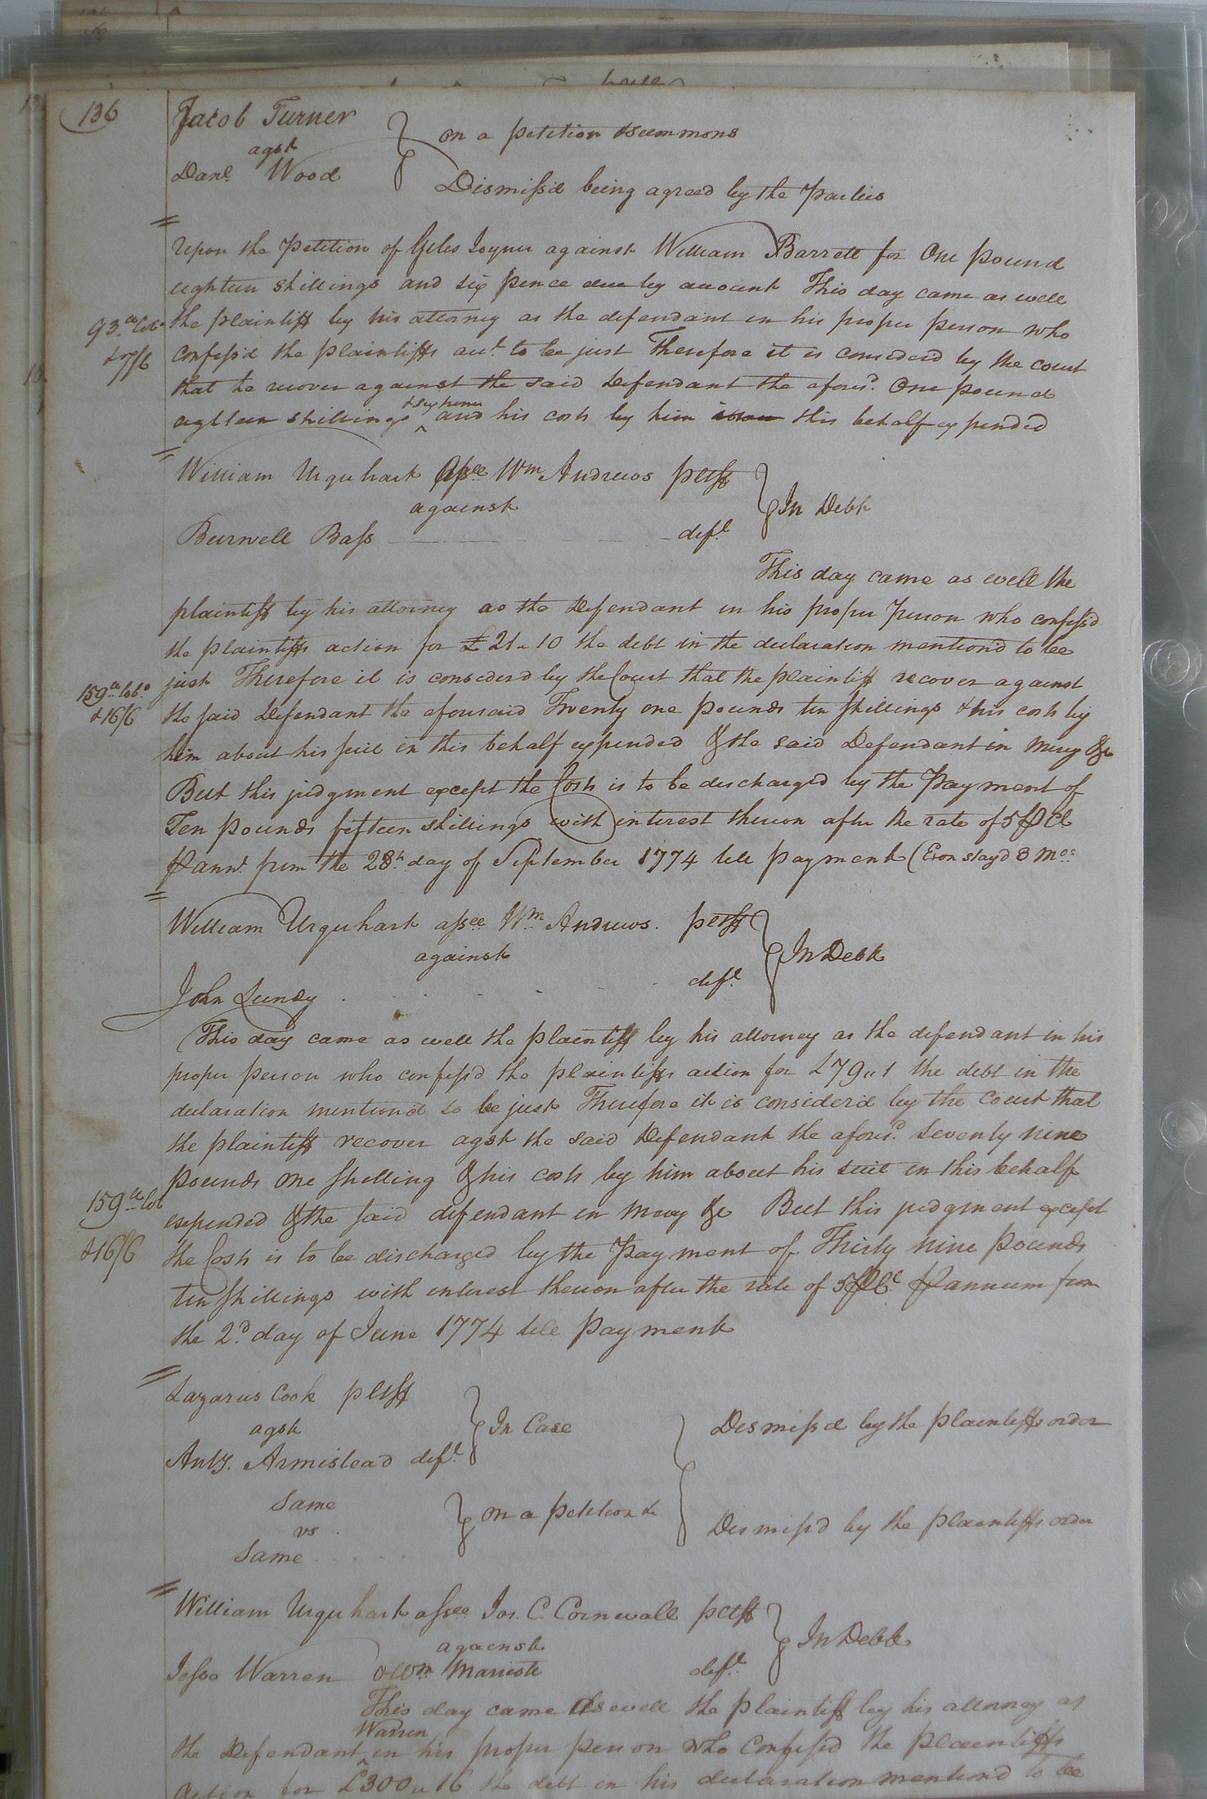 136
Jacob Turner
agst
Danl. Wood
on a petition & summons
Dismiss'd being agreed by the Parties
Upon the Petition of Giles Joyner against William Barrett for One pound
eighteen shillings and six pence due by account This day came as well
the plaintiff by his attorney as the defendant in his proper person who
93. Tob°
& 7/6
confess'd the plaintiffs acct. to be just Therefore it is considerd by the court
that he recover against the said Defendant the aforsd. One pound
& six pence
eighteen shillings ^ and his costs by him in this behalf expended
William Urquhart assee Wm Andrews pltff
against
Burwell Bass deft.
In Debt
This day came as well the
plaintiff by his attorney as the Defendant in his proper Person who confess'd
the plaintiffs action for £21..10 the debt in the declaration mention'd to be
just Therefore it is considerd by the Court that the plaintiff recover against
159 Tob°
& 16/6
the said Defendant the aforesaid Twenty one pounds ten shillings & his costs by
him about his suit in this behalf expended & the said Defendant in mercy &c
But this judgment except the Costs is to be discharged by the Payment of
Ten pounds fifteen shillings with interest thereon after the rate of 5 P Ct
P annm. from the 28th day of September 1774 till payment (Exon stay'd 3 Mos.
William Urquhart assee Wm Andrews. pltff
against
John Lundy deft.
In Debt
This day came as well the plaintiff by his attorney as the defendant in his
proper person who confess'd the plaintiffs action for £79..1 the debt in the
declaration mention'd to be just Therefore it is consider'd by the Court that
the plaintiff recover agst the said Defendant the aforsd. Seventy nine
pounds one shilling & his costs by him about his suit in this behalf
159 Tob
& 16/6
expended & the said defendant in mercy &c But this judgment except
the Costs is to be discharged by the Payment of Thirty nine pounds
ten shillings with interest thereon after the rate of 5 P Ct P annum from
the 2d. day of June 1774 till payment
Lazarus Cook pltff
agst
Anty. Armistead deft.
In Case
Dismiss'd by the plaintiffs order
Same
vs
Same
On a petition &c
Dismiss'd by the plaintiffs order
William Urquhart assee Jos. C. Cornwall pltff
against
Jesse Warren & Wm deft.
In Debt
This day came as well the plaintiff by his attorney as
Warren
the Defendant ^ in his proper person who confess'd the plaintiffs
action for £300..16 the debt in his declaration mention'd to be